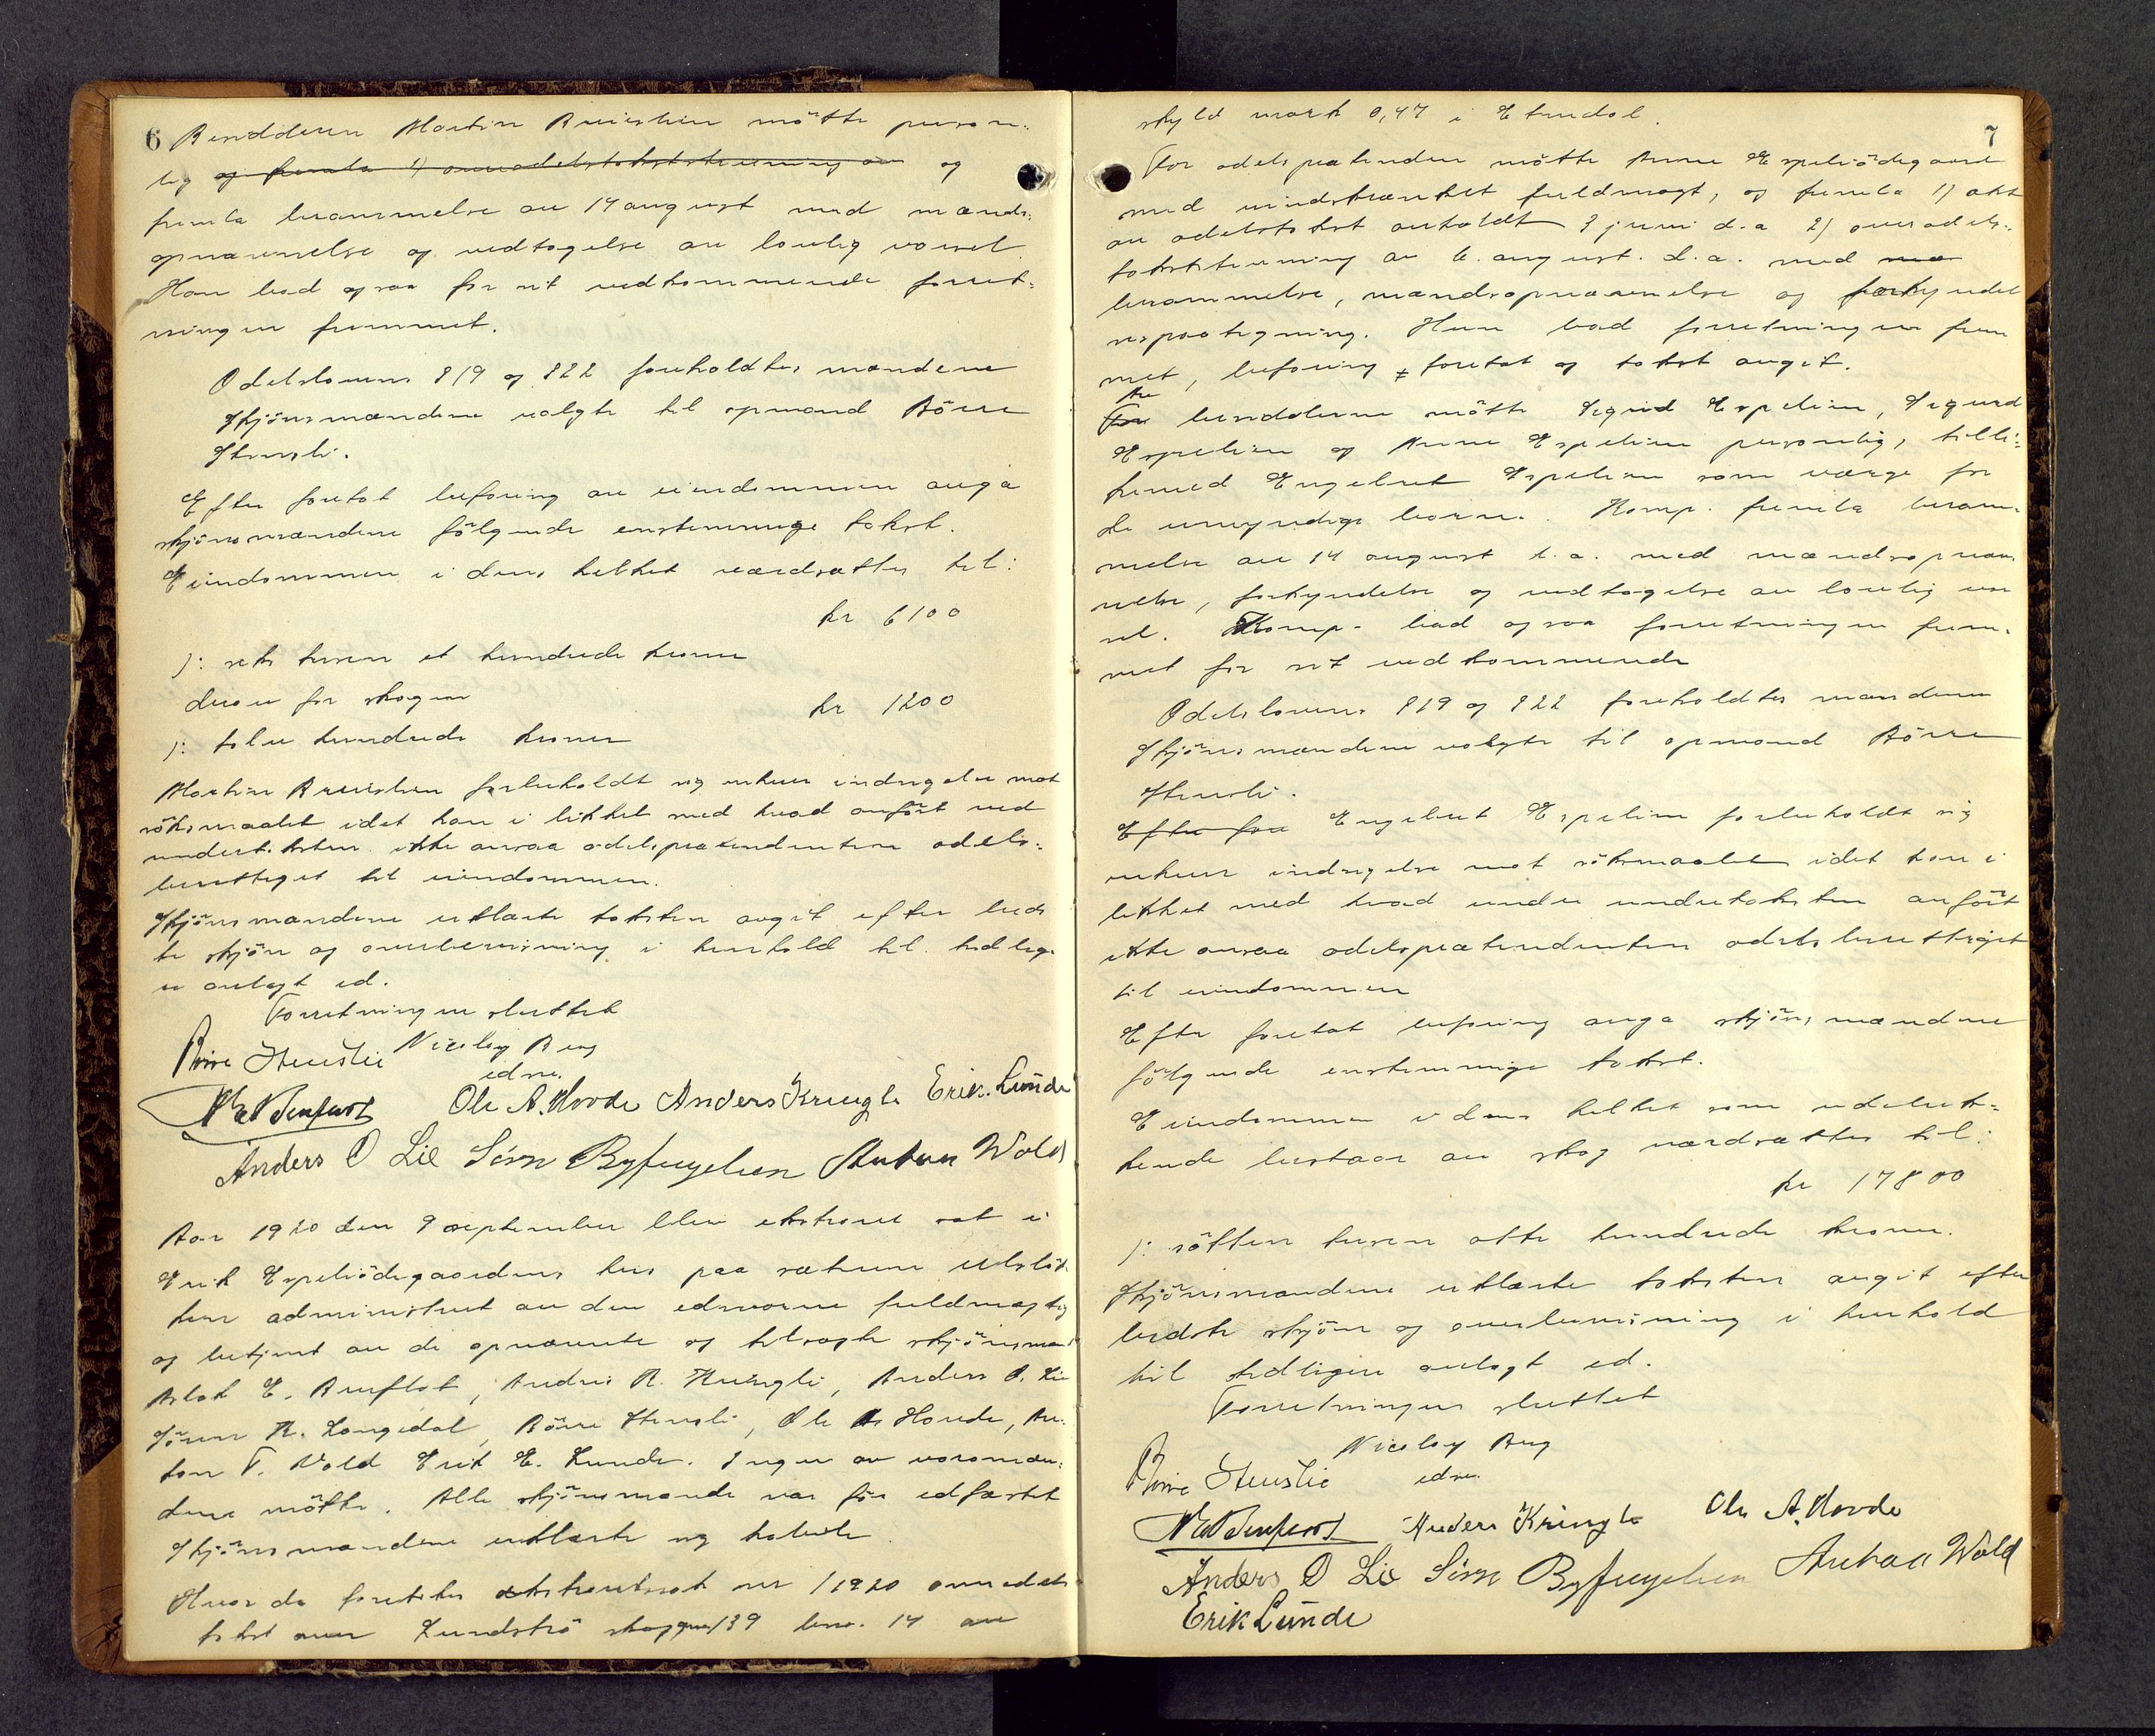 6 Besidderen Martin Bruislien mötte person-
lig og fremla 1) overodelstakststevning av og
fremla berammelse av 14 august med mænds-
opnævnelse og vedtagelse av lovlig varsel.
Han bad ogsaa for sit vedkommende forret-
ningen fremmet.
Odelslovens §19 og §22 foreholdtes mændene
Skjönsmændene valgte til opmand Börre
Stensli.
Efter foretat befaring av eiendommen avga
skjönsmændene fölgende enstemmige takst.
Eiendommen i dens helhet værdsættes til:
kr 6100
): seks tusen et hundrede kroner
derav for skogen
kr 1200
): tolv hundrede kroner
Martin Bruislien forbeholdt sig enhver indsigelse mot
söksmaalet idet han i likhet med hvad anfört ved
undertaksten ikke ansaa odelsprætendenten odels-
berettiget til eiendommen.
Skjönsmændene erklærte taksten avgit efter beds
te skjön og overbevisning i henhold til tidlige-
re avlagt ed.
Forretningen sluttet
Nicolay Berg
edsv.
Börre Stenslie
Ole A. Hovde Anders Kringli Erik. Lunde
Anders O Lie Sörn Byfuglien Anton Wold
Aar 1920 den 9 september blev ekstraret sat i
Erik Espeliödegaardens hus paa sæteren
administrert av den edsvorne fuldmægtig
og betjent av de opnævnte og tilsagte skjönsmænd
Aslak E. Bruflat, Anders R. Kringli, Anders O. Lie
Sören R. Langedal, Börre Stensli, Ole A. Hovde, An-
ton T. Wold Erik E. Lunde. Ingen av varamæn-
dene mötte. Alle skjönsmænd var för edfæstet
Skjönsmændene erklærte sig habile.
Hvor da foretokes ekstraretssak nr 1/1920 overodels
takst over Lundströ skog gnr 139 bnr. 14 av
7
skyld mark 0,47 i Etnedal.
For odelsprætenden mötte Anne Espeliödegaard
med uindskrænket fuldmagt, og fremla 1) akt
av odelstakst avholdt 3 juni d.a 2) overodels-
takststevning av 6. august. d.a. med
berammelse, mændsopnævnelse og forkyndel
sespaategning. Hun bad forretningen frem
met, befaring foretat og takst avgit.
Av besidderne mötte Sigrid Espelien, Sigurd
Espelien og Anne Espelien personlig, tilli-
kemed Engebret Espelien som værge for
de umyndige barn. Komp. fremla beram-
melse av 14 august d.a. med mændsopnæv
nelse, forkyndelse og vedtagelse av lovlig var
sel. Komp. bad ogsaa forretningen frem-
met for sit vedkommende
Odelslovens §19 og §22 foreholdtes mændene
Skjönsmændene valgte til opmand Börre
Stensli.
Efter for Engebret Espelien forbeholdt sig
enhver indsigelse mot söksmaalet idet han i
likhet med hvad under undertaksten anfört
ikke ansaa odelsprætendenten odelsberettiget
til eiendommen
Efter foretat befaring avga skjönsmændene
fölgende enstemmige takst.
Eiendommen i dens helhet som udeluk-
kende bestaar av skog værdsættes til:
kr 17800
): sötten tusen otte hundrede kroner.
Skjönsmændene erklærte taksten avgit efter
bedste skjön og overbevisning i henhold
til tidligere avlagt ed.
Forretningen sluttet
Nicolay Berg
edsv.
Börre Stenslie
Anders Kringli Ole A. Hovde
Anders O Lie Sörn Byfuglien Anton Wold
Erik Lunde